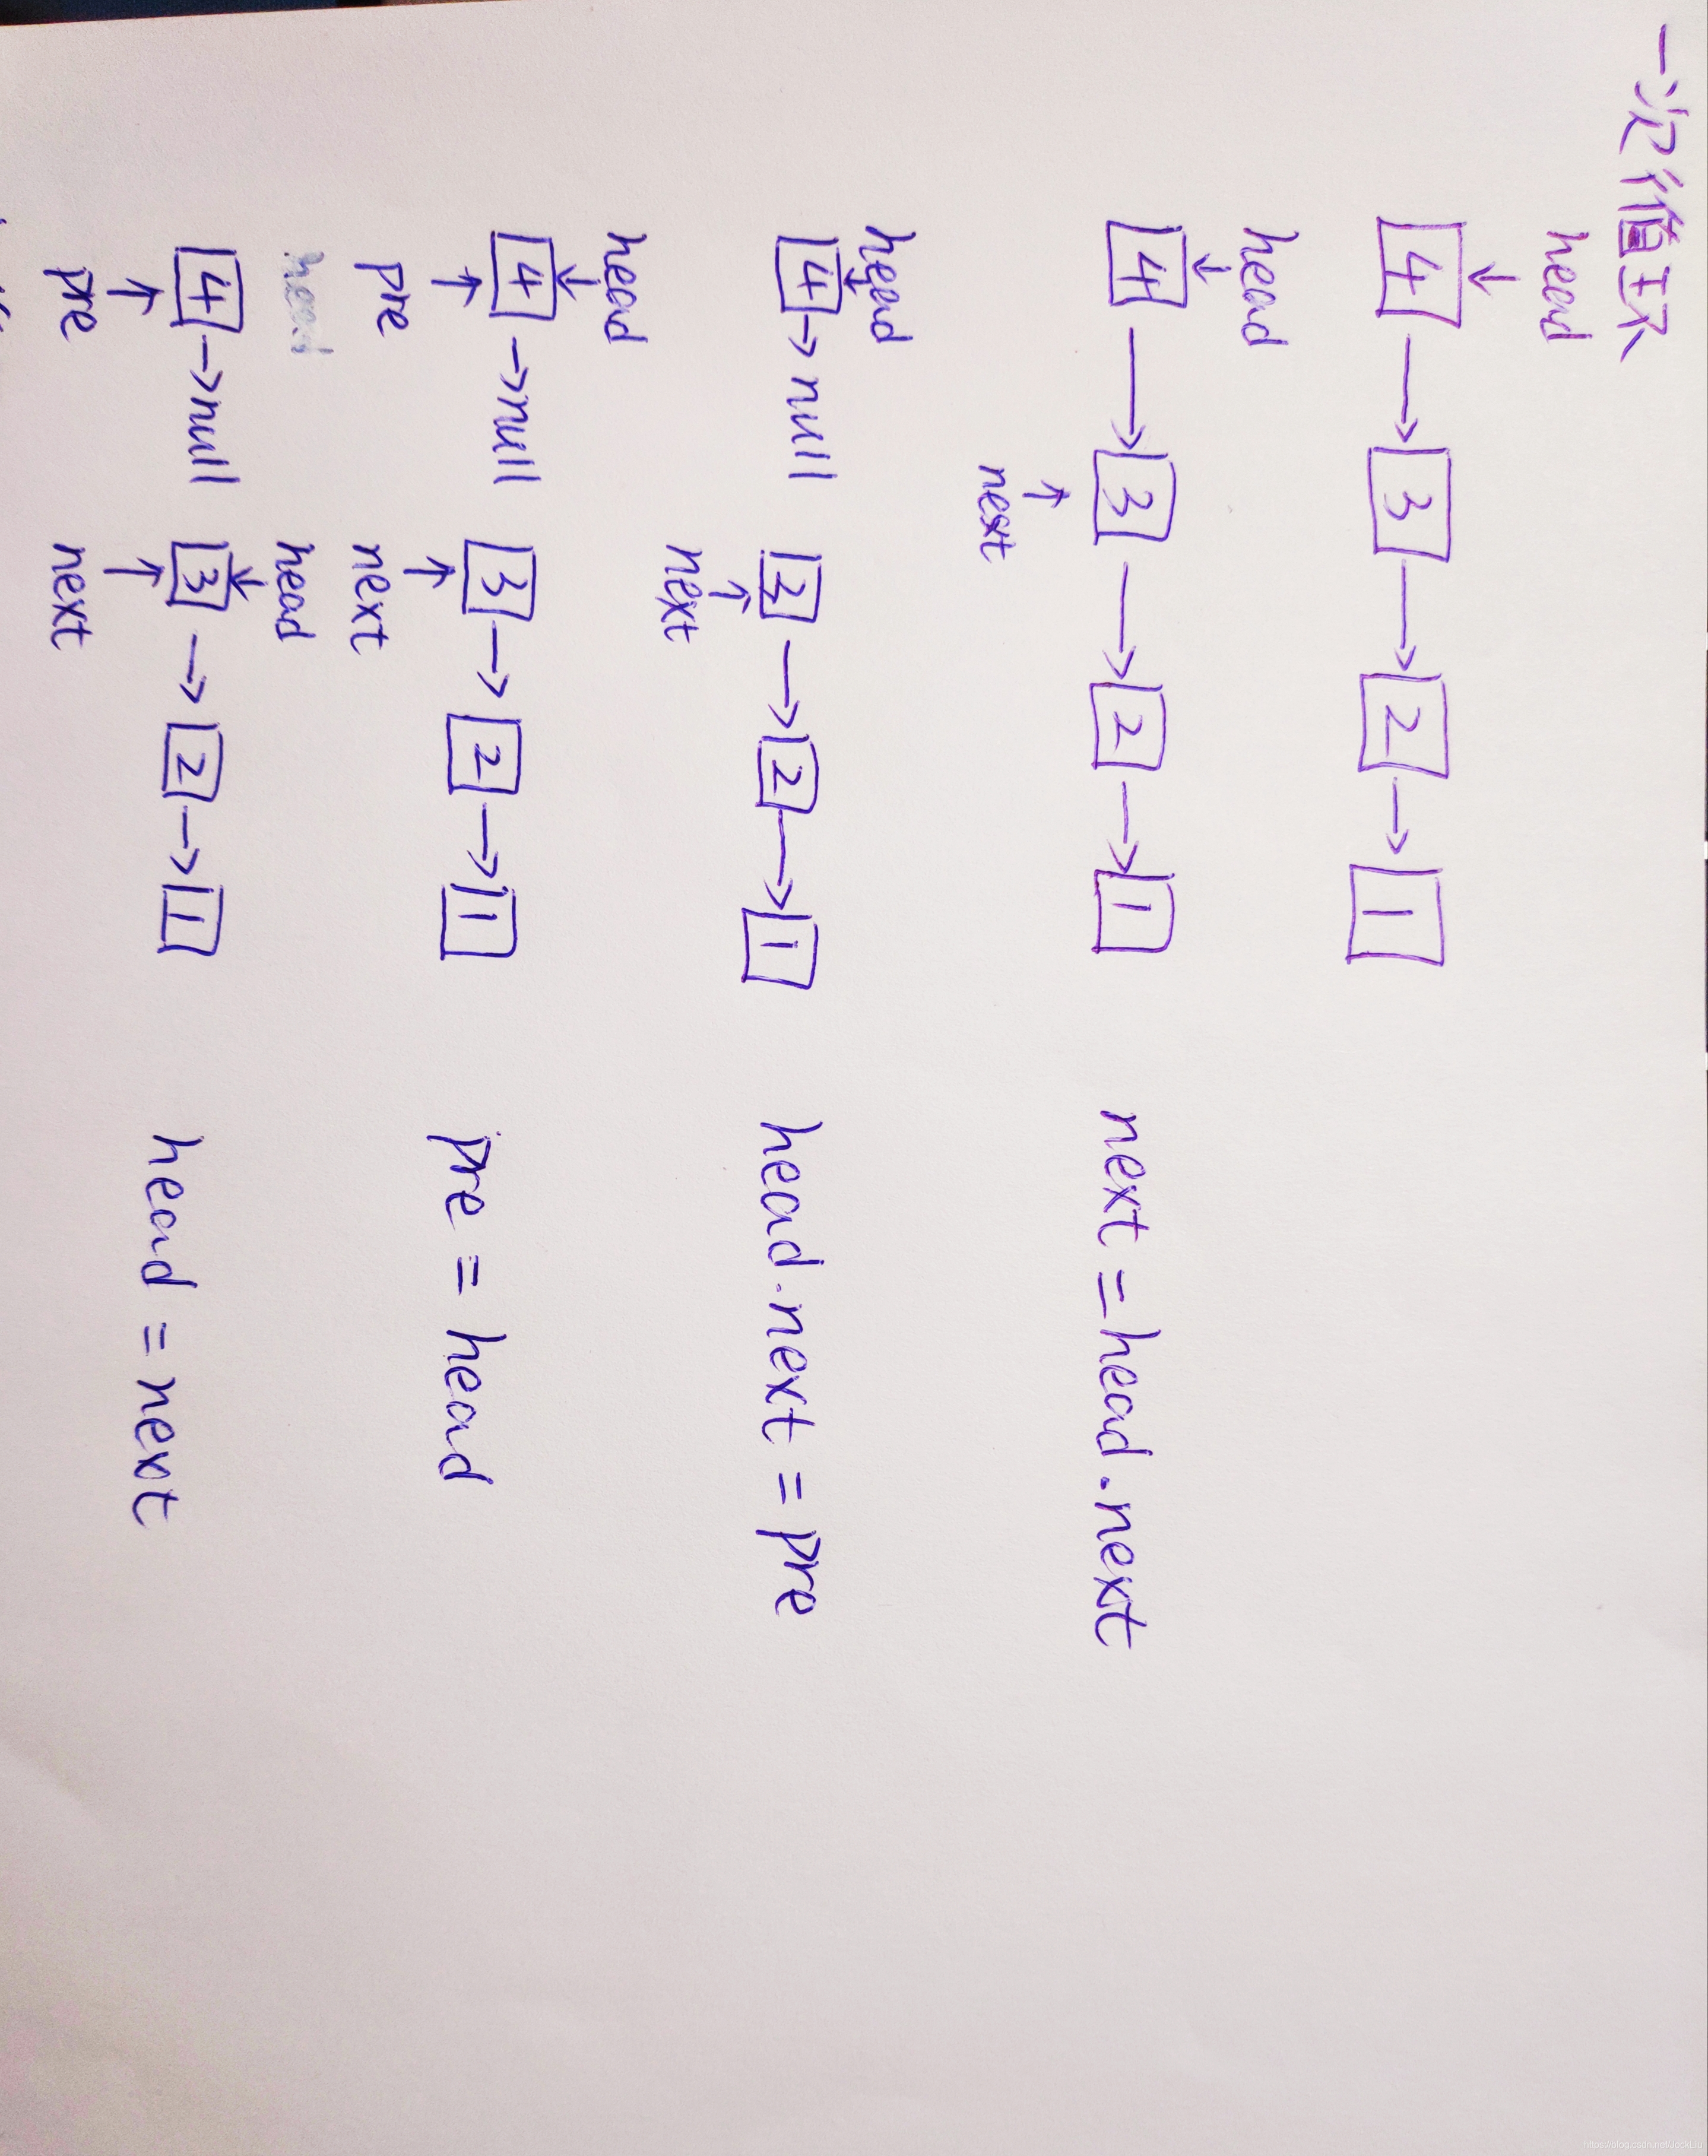 一次循环
head
4 → 3 → 2 → 1
head
4 → 3 → 2 → 1 next = head.next
next
head
4 → null 3 → 2 → 1 head.next = pre
next
head
4 → null 3 → 2 → 1 pre = head
pre next
head head
4 → null 3 → 2 → 1 head = next
pre next